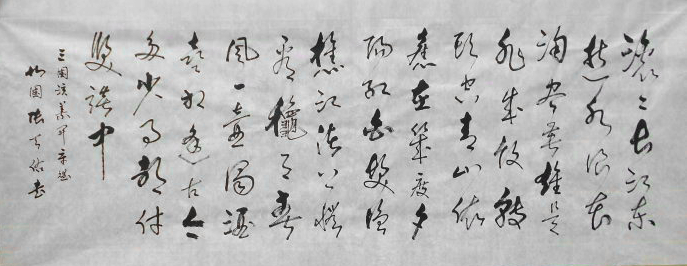 滚〻长江东
逝水浪花
淘尽英雄是
非成败转
头空青山依
旧在几度夕
阳红白发渔
樵江渚上惯
看龝月春
风一壶浊酒
喜相逢古今
多少事都付
笑谈中
三国演义开章
书